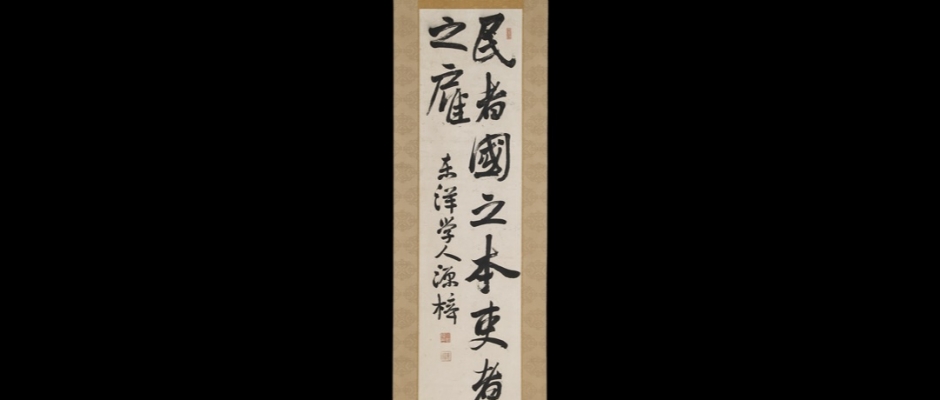 民者國之本吏者
之雇
東洋学人源梓